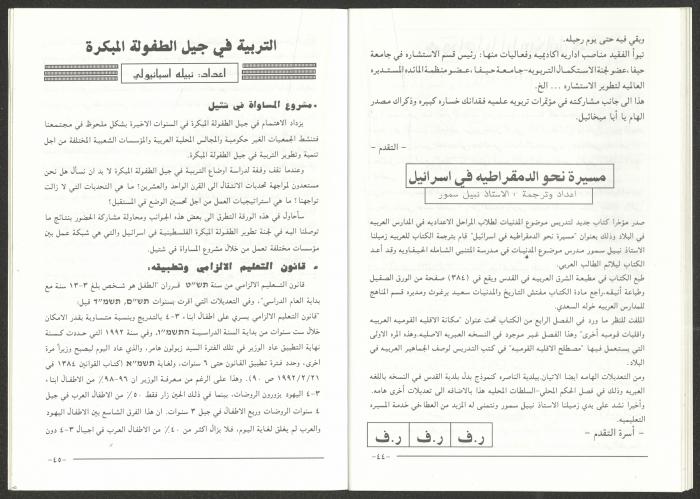 وبقي فيه حتى يوم رحيله.
تبوأ الفقيد مناصب اداريه اكاديميه وفعاليات منها: رئيس قسم الاستشاره في جامعة
حيفا، عضو لجنة الاستكمال التربويه - جامعة حيفا، عضو منظمة المائده المستديره
العالميه لتطوير الاستشاره ... الخ.
هذا الى جانب مشاركته في مؤتمرات تربويه علميه فقدانك خساره كبيره وذكراك مصدر
الهام يا أبا ميخائيل.
- التقدم -
مسيرة نحو الدمقراطيه في اسرائيل
اعداد وترجمة : الاستاذ نبيل سمور
صدر مؤخرا كتاب جديد لتدريس موضوع المدنيات لطلاب المراحل الاعداديه في المدارس العربيه
في البلاد وذلك بعنوان "مسيرة نحو الدمقراطيه في اسرائيل" قام بترجمة الكتاب للعربيه زميلنا
الاستاذ نبيل سمور مدرس موضوع المدنيات في مدرسة المتنبي الشامله الحيفاويه وقد أعد
الكتاب ليلائم الطالب العربي.
طبع الكتاب في مطبعة الشرق العربيه في القدس ويقع في (٣٨٤) صفحة من الورق الصقيل
وطباعة أنيقه. راجع مادة الكتاب مفتش التاريخ والمدنيات سعيد برغوث ومديره قسم المناهج
للمدارس العربيه خوله السعدي.
الملفت للنظر ما ورد في الفصل الرابع من الكتاب تحت عنوان "مكانة الاقليه القوميه العربيه
واقليات قوميه أخرى" وهذا الفصل غير موجود في النسخه العبريه الاصليه. وهذه المره الاولى
التي يستعمل فيها "مصطلح الاقليه القوميه" في كتب التدريس لوصف الجماهير العربيه في
البلاد.
ومن التعديلات الهامه ايضا الاتيان ببلدية الناصره كنموذج بدل بلدية القدس في النسخه باللغه
العبريه وذلك في فصل الحكم المحلي - السلطات المحليه هذا بالاضافه الى تعديلات أخرى هامه.
وأخيرا نشد على يدي زميلنا الاستاذ نبيل سمور ونتمنى له المزيد من العطاء في خدمة المسيره
التعليميه.
- أسرة التقدم -
ر.ف ر.ف ر.ف
-٤٤-
التربية في جيل الطفولة المبكرة
اعداد: نبيله اسبانيولي
• مشروع المساواة في شتيل
يزداد الاهتمام في جيل الطفولة المبكرة في السنوات الاخيرة بشكل ملحوظ في مجتمعنا
فتنشط الجمعيات الغير حكومية والمجالس المحلية العربية والمؤسسات الشعبية المختلفة من اجل
تنمية وتطوير التربية في جيل الطفولة المبكرة.
وعندما نقف وقفة لدراسة اوضاع التربية في جيل الطفولة المبكرة لا بد ان نسأل هل نحن
مستعدون لمواجهة تحديات الانتقال الى القرن الواحد والعشرين؟ ما هي التحديات التي لا زالت
تواجهنا؟ ما هي استراتيجيات العمل من اجل تحسين الوضع في المستقبل؟
سأحاول في هذه الورقة التطرق الى بعض هذه الجوانب ومحاولة مشاركة الحضور بنتائج ما
توصلنا اليه في لجنة تطوير الطفولة المبكرة الفلسطينية في اسرائيل والتي هي شبكة عمل بين
مؤسسات مختلفة تعمل من خلال مشروع المساواة في شتيل.
• قانون التعليم الالزامي وتطبيقه:
قانون التعليم الالزامي من سنة תש"ט قرران "الطفل هو شخص بلغ ٣-١٣ سنة مع
بداية العام الدراسي". وفي التعديلات التي اقرت بسنوات תש"ם, תשמ"ד قيل:
"قانون التعليم الالزامي يسري على اطفال ابناء ٣-٤ بالتدريج وبنسبة متساوية بقدر الامكان
خلال ست سنوات من بداية السنة الدراسية התשמ"ו. وفي سنة ١٩٩٢ التي حددت كسنة
نهاية التطبيق عاد الوزير في تلك الفترة السيد زبولون هامر، والذي عاد اليوم ليصبح وزيراً مرة
اخرى، وحدد فترة تطبيق القانون حتى ٦ سنوات، ولغاية תשמ"א (كتاب القوانين ١٣٨٤ في
١٩٩٢/٢/٢١ ص ٩٠). وهذا على الرغم من معرفة الوزير ان ٩٦-٩٨٪ من الاطفال ابناء
٣-٤ اليهود يزورون الروضات، بينما في ذلك الحين زار فقط ٥٠٪ من الاطفال العرب في جيل
٤ سنوات الروضات وربع الاطفال في جيل ٣ سنوات. ان هذا الفرق الشاسع بين الاطفال اليهود
والعرب لم يغلق لغاية اليوم، فلا يزال اكثر من ٤٠٪ من الاطفال العرب في اجيال ٣-٤ دون
-٤٥-